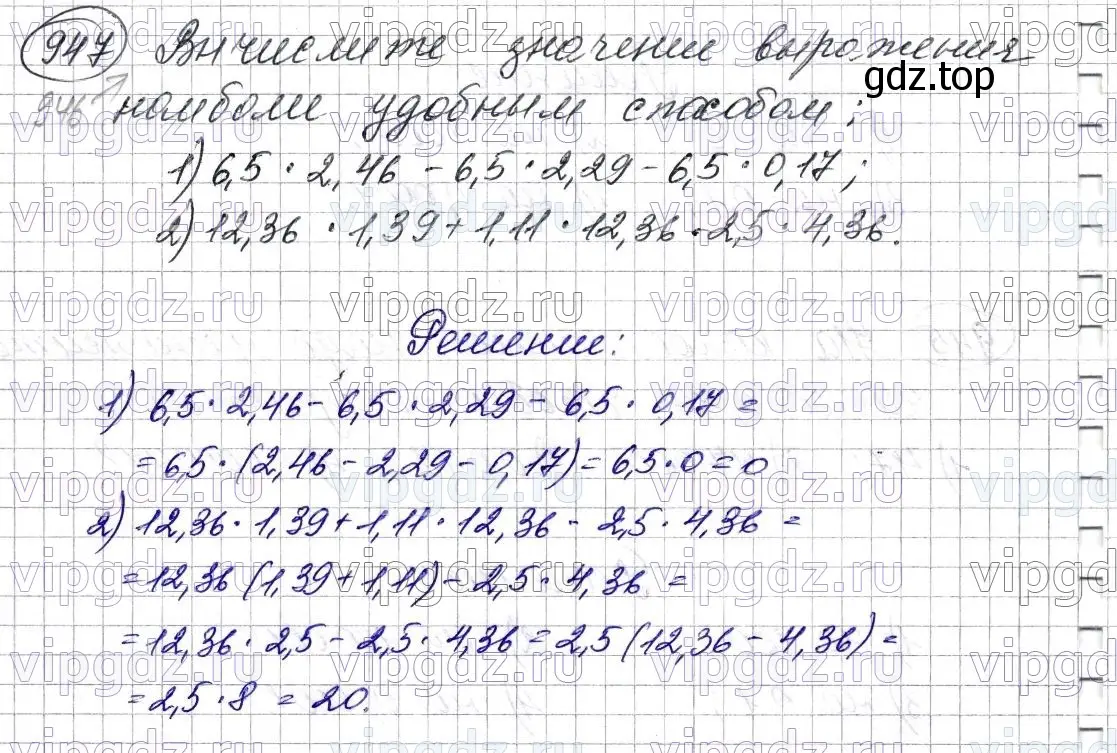 947 Вычислите значение выражения
gdz.top
946 наиболее удобным способом:
1) 6,5 · 2,46 - 6,5 · 2,29 - 6,5 · 0,17;
2) 12,36 · 1,39 + 1,11 · 12,36 - 2,5 · 4,36.
Решение:
1) 6,5 · 2,46 - 6,5 · 2,29 - 6,5 · 0,17 =
= 6,5 · (2,46 - 2,29 - 0,17) = 6,5 · 0 = 0
2) 12,36 · 1,39 + 1,11 · 12,36 - 2,5 · 4,36 =
= 12,36 (1,39 + 1,11) - 2,5 · 4,36 =
= 12,36 · 2,5 - 2,5 · 4,36 = 2,5 (12,36 - 4,36) =
= 2,5 · 8 = 20.
vipgdz.ru